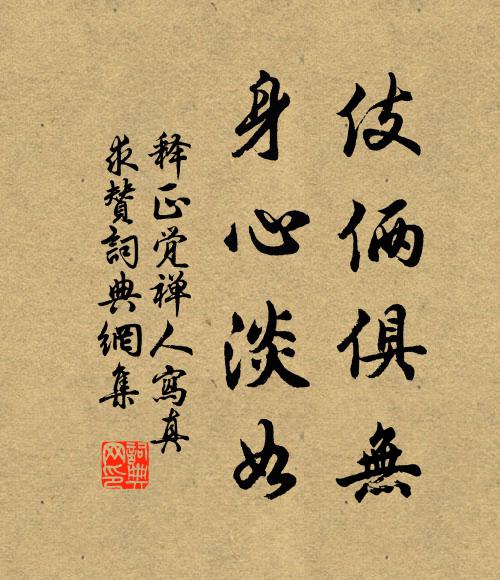 伎俩俱無
身心淡如
释正觉禅人寫真
求贊詞典網集
詞典
网印